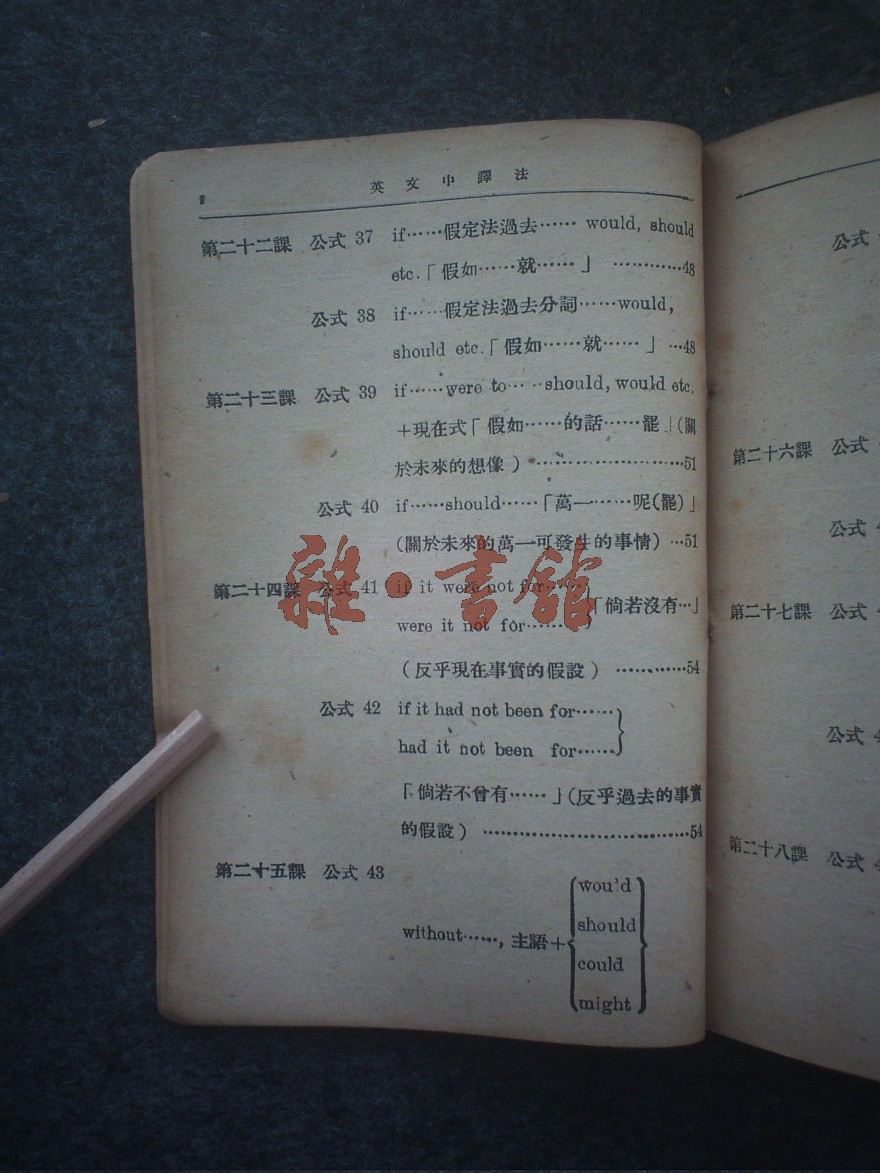 英文中譯法
第二十二課 公式 37 if……假定法過去…… would, should
etc.「假如……就…… 」 …………48
公式 38 if……假定法過去分詞……would,
should etc.「假如……就…… 」 …48
第二十三課 公式 39 if……were to……should, would etc.
＋現在式「假如……的話……罷」(關
於未來的想像) ………………51
公式 40 if……should……「萬一……呢(罷)」
(關於未來的萬一可發生的事情) …51
第二十四課 公式 41 if it were not for……
were it not for……
「倘若沒有…」
(反乎現在事實的假設) …………54
公式 42 if it had not been for……
had it not been for……
「倘若不曾有…… 」(反乎過去的事實
的假設) ……………………………54
第二十五課 公式 43
would
without……, 主語＋
should
could
might
雜·書館
公式
第二十六課 公式
公式 4
第二十七課 公式 4
公式 4
第二十八課 公式 4